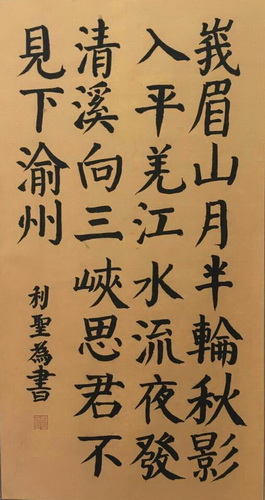 峩眉山月半輪秋影
入平羌江水流夜發
清溪向三峽思君不
見下渝州
利聖為書